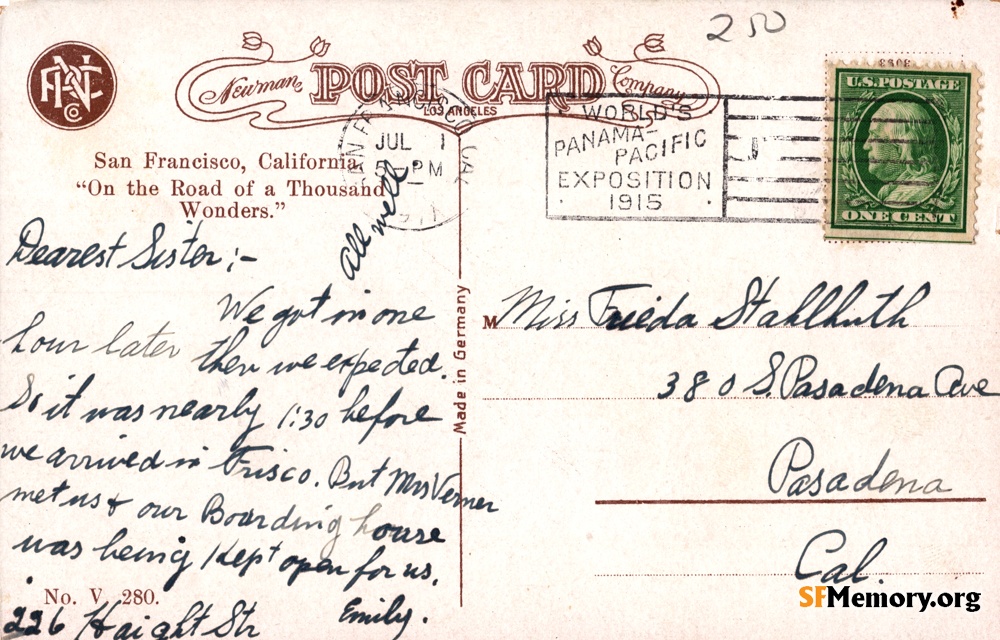 250
Newman POST CARD Company
LOS ANGELES
SAN FRANCISCO CAL
JUL 1
PM
WORLD'S
PANAMA-
PACIFIC
EXPOSITION
1915
3093
U.S. POSTAGE
ONE CENT
San Francisco, California
"On the Road of a Thousand
Wonders."
all well
Dearest Sister :-
We got in one
hour later then we expected.
So it was nearly 1:30 before
we arrived in Frisco. But Mrs Verner
met us & our Boarding house
was being kept open for us.
Emily.
No. V. 280.
226 Haight Str
Made in Germany
M Miss Frieda Stahlhuth
380 S. Pasadena Ave
Pasadena
Cal.
SFMemory.org